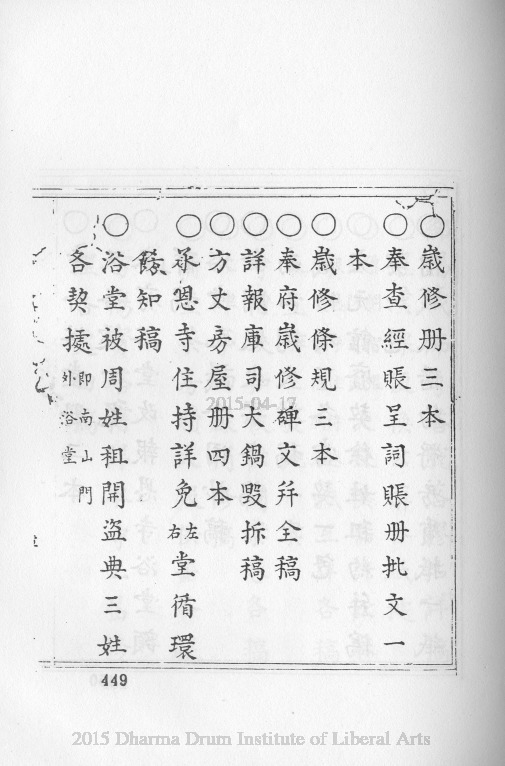 ○歲修册三本
○奉查經賬呈詞賬册批文一
本
○歲修條規三本
○奉府歲修碑文并全稿
○詳報庫司大鍋毀拆稿
○方丈房屋册四本
○承恩寺住持詳免左右堂循環
餘知稿
○浴堂被周姓租開盜典三姓
各契據即南山門外浴堂
449
2015-04-17
2015 Dharma Drum Institute of Liberal Arts